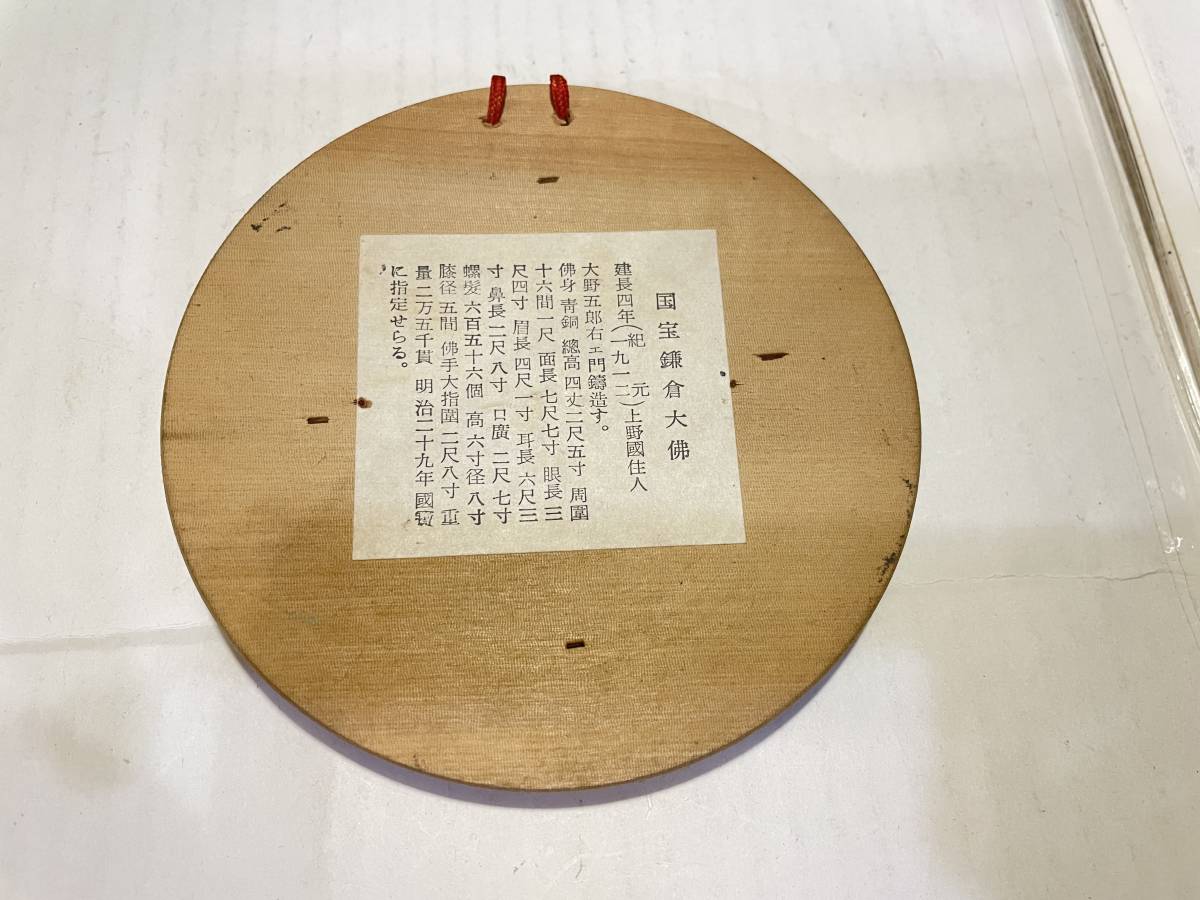 国宝鎌倉大佛
建長四年(紀元一九一二)上野國住人
大野五郎右ェ門鑄造す。
佛身 青銅 總高 四丈二尺五寸 周圍
十六間一尺 面長 七尺七寸 眼長 三
尺四寸 眉長 四尺一寸 耳長 六尺三
寸 鼻長 二尺八寸 口廣 二尺七寸
螺髮 六百五十六個 高 六寸径 八寸
膝径 五間 佛手大指圍 二尺八寸 重
量 二万五千貫 明治二十九年 國寳
に指定せらる。